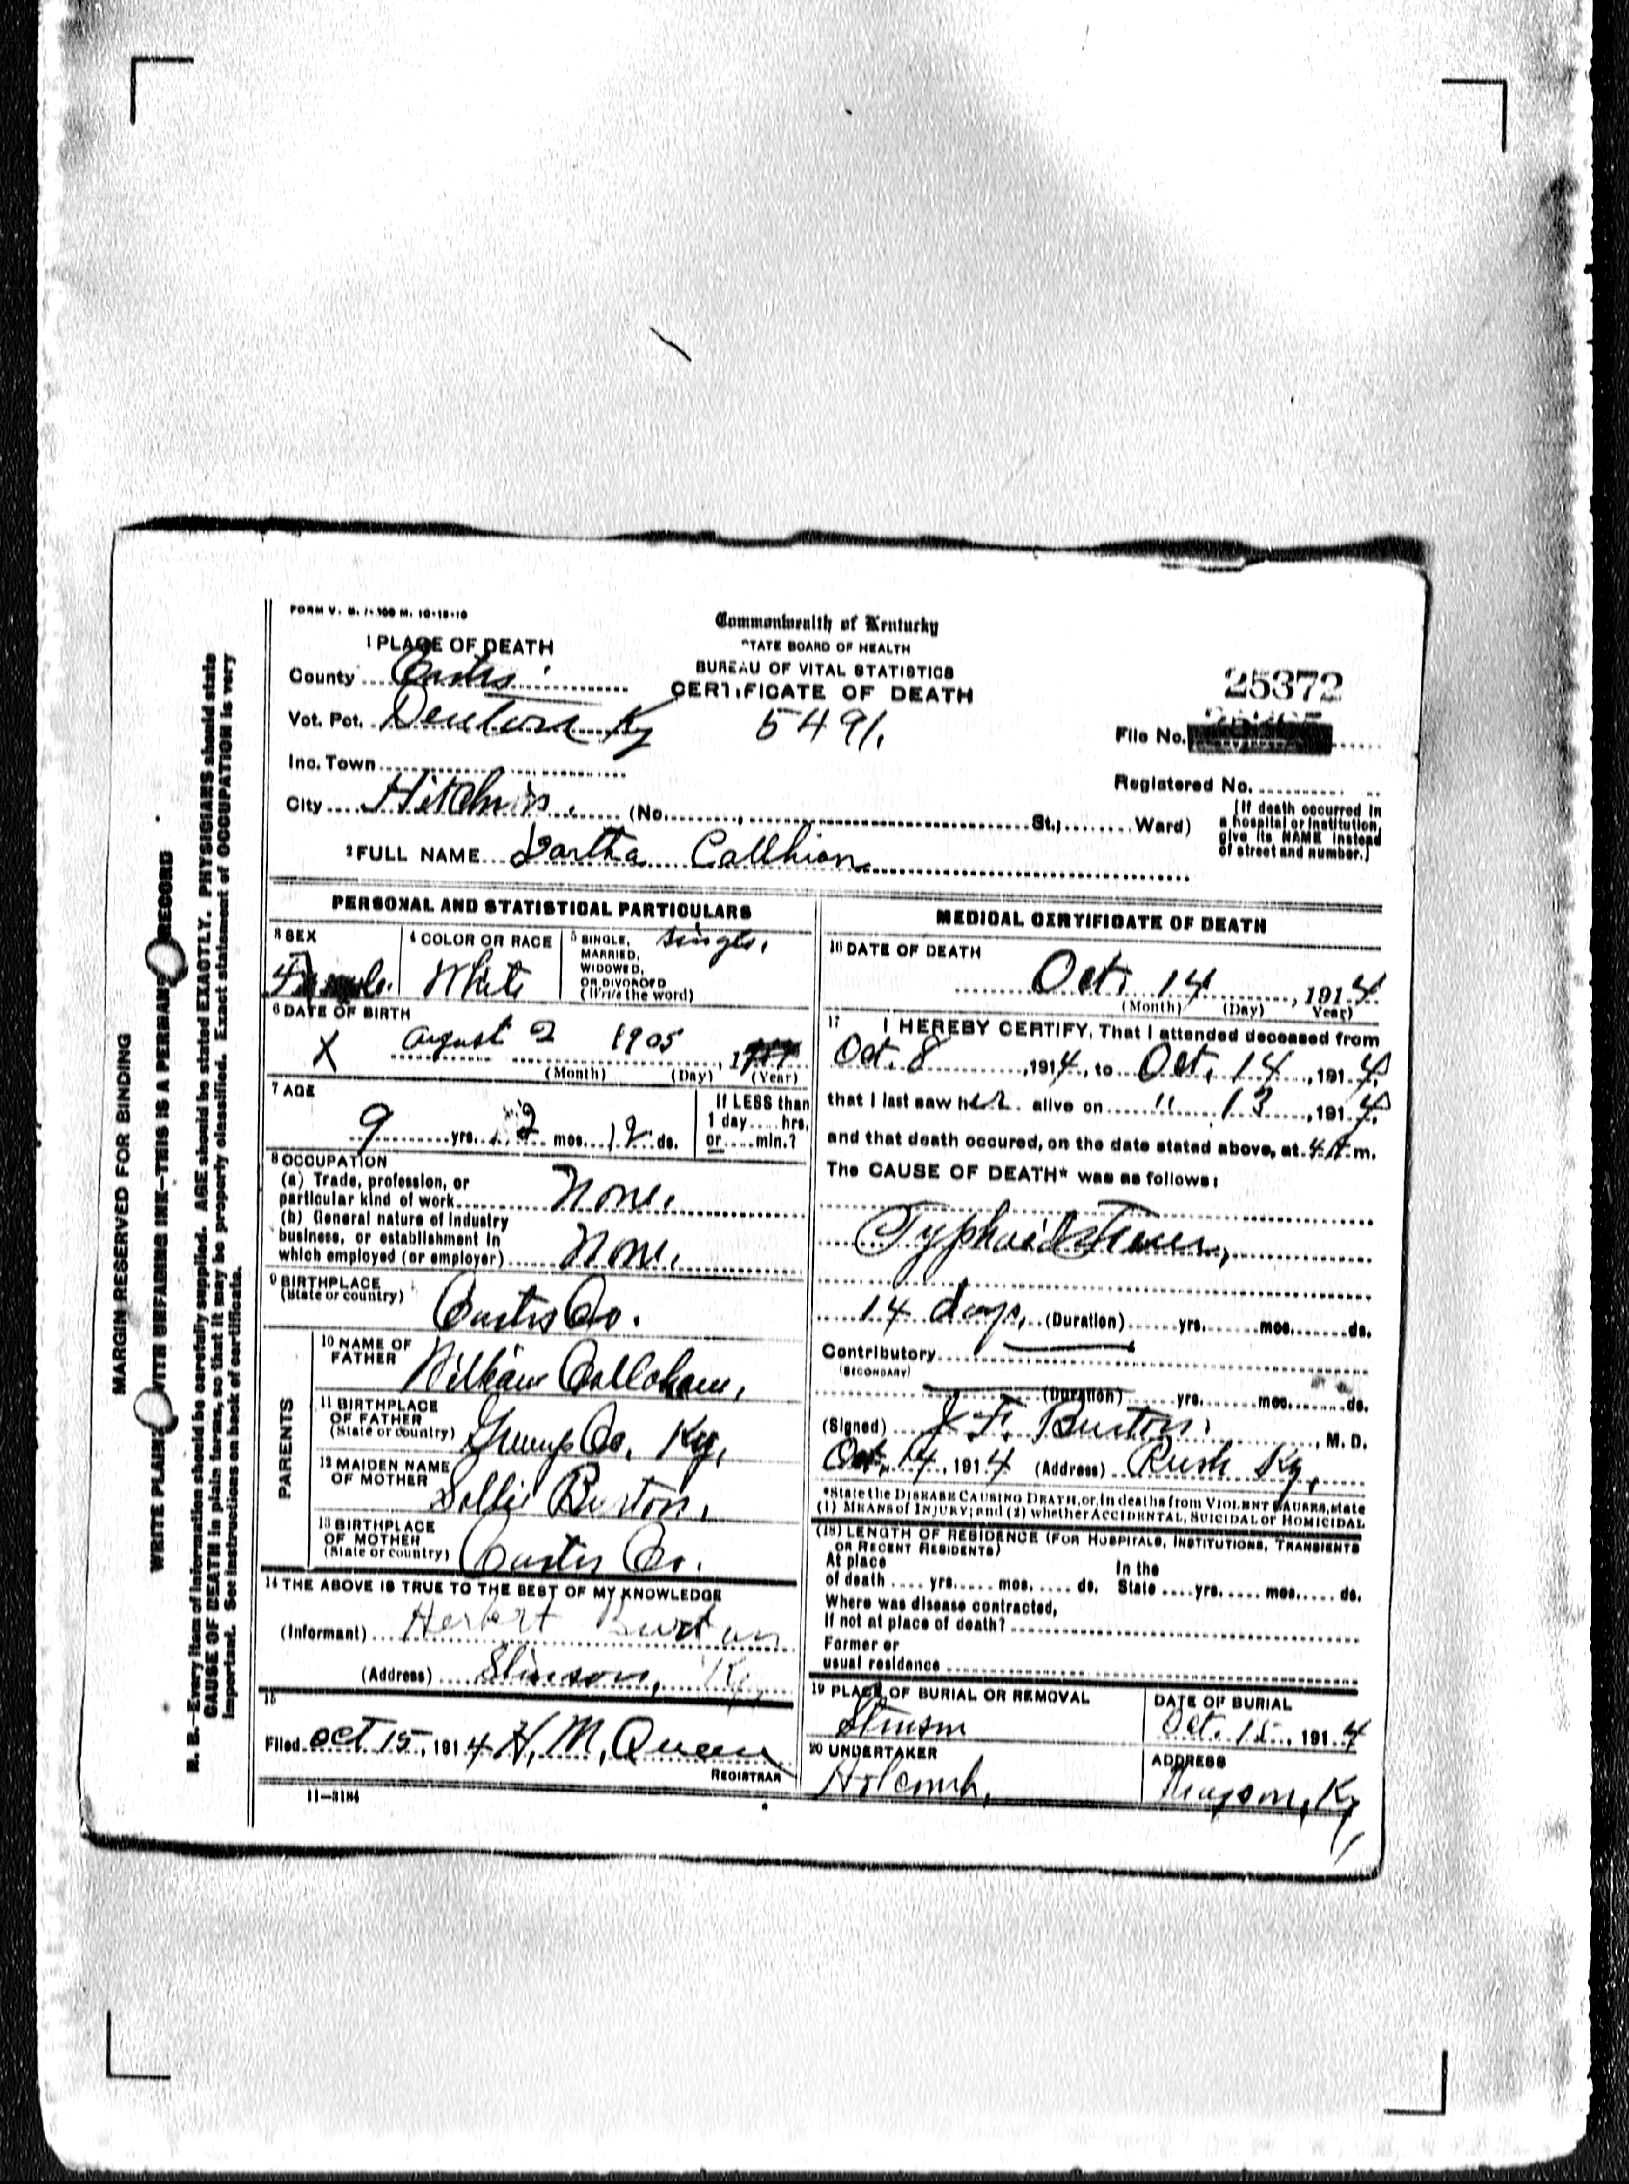 FORM V. S. 1-300 M. 10-18-10
Commonwealth of Kentucky
STATE BOARD OF HEALTH
BUREAU OF VITAL STATISTICS
CERTIFICATE OF DEATH
5491.
25372
1 PLACE OF DEATH
County Carter
Vot. Pct. Denton Ky
Inc. Town
City Hitchins. (No. St.; Ward)
File No.
Registered No.
(If death occurred in
a hospital or institution,
give its NAME instead
of street and number.)
2 FULL NAME Callhion
PERSONAL AND STATISTICAL PARTICULARS
3 SEX
Female.
4 COLOR OR RACE
White
5 SINGLE, MARRIED, WIDOWED, OR DIVORCED (Write the word)
Single.
6 DATE OF BIRTH
X August 2 1905
(Month) (Day) (Year)
7 AGE
9 yrs. 2 mos. 12 ds.
If LESS than
1 day hrs.
or min.?
8 OCCUPATION
(a) Trade, profession, or
particular kind of work None.
(b) General nature of industry
business, or establishment in
which employed (or employer) None.
9 BIRTHPLACE
(State or country) Carter Co.
PARENTS
10 NAME OF
FATHER William Callohan,
11 BIRTHPLACE
OF FATHER
(State or country) Greenup Co. Ky.
12 MAIDEN NAME
OF MOTHER Sollie Burton.
13 BIRTHPLACE
OF MOTHER
(State or country) Carter Co.
14 THE ABOVE IS TRUE TO THE BEST OF MY KNOWLEDGE
(Informant) Herbert Burton
(Address) Stinson, Ky.
15
Filed Oct 15, 1914 H. M. Queen
REGISTRAR
11-3184
MEDICAL CERTIFICATE OF DEATH
16 DATE OF DEATH
Oct. 14, 1914
(Month) (Day) Year)
17 I HEREBY CERTIFY, That I attended deceased from
Oct. 8, 1914, to Oct. 14, 1914,
that I last saw her alive on " 13, 1914,
and that death occured, on the date stated above, at 4 A m.
The CAUSE OF DEATH* was as follows:
Typhoid Fever,
14 days, (Duration) yrs. mos. ds.
Contributory
(SECONDARY)
(Duration) yrs. mos. ds.
(Signed) J. F. Burton. M. D.
Oct. 14, 1914 (Address) Rush Ky.
*State the DISEASE CAUSING DEATH, or, in deaths from VIOLENT CAUSES, state
(1) MEANS of INJURY; and (2) whether ACCIDENTAL, SUICIDAL or HOMICIDAL
(18) LENGTH OF RESIDENCE (FOR HOSPITALS, INSTITUTIONS, TRANSIENTS
OR RECENT RESIDENTS)
At place In the
of death yrs. mos. ds. State yrs. mos. ds.
Where was disease contracted,
if not at place of death?
Former or
usual residence
19 PLACE OF BURIAL OR REMOVAL
Stinson
DATE OF BURIAL
Oct. 15, 1914
20 UNDERTAKER
Holcomb,
ADDRESS
Grayson, Ky
MARGIN RESERVED FOR BINDING
WRITE PLAINLY WITH UNFADING INK—THIS IS A PERMANENT RECORD
N. B.—Every item of information should be carefully supplied. AGE should be stated EXACTLY. PHYSICIANS should state
CAUSE OF DEATH in plain terms, so that it may be properly classified. Exact statement of OCCUPATION is very
important. See instructions on back of certificate.